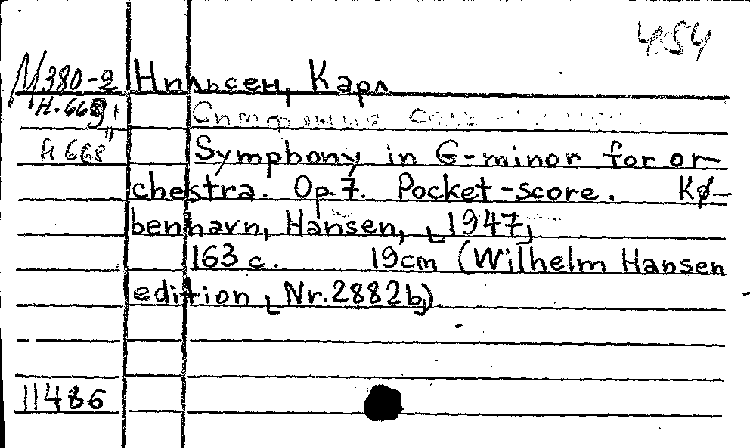 454
М380-2 Нильсен, Карл
Н.669
Н668 Symphony in G-minor for or-
chestra. Op.7. Pocket-score. Kø-
benhavn, Hansen, [1947]
163 с. 19cm (Wilhelm Hansen
edition [Nr.2882b])
11486